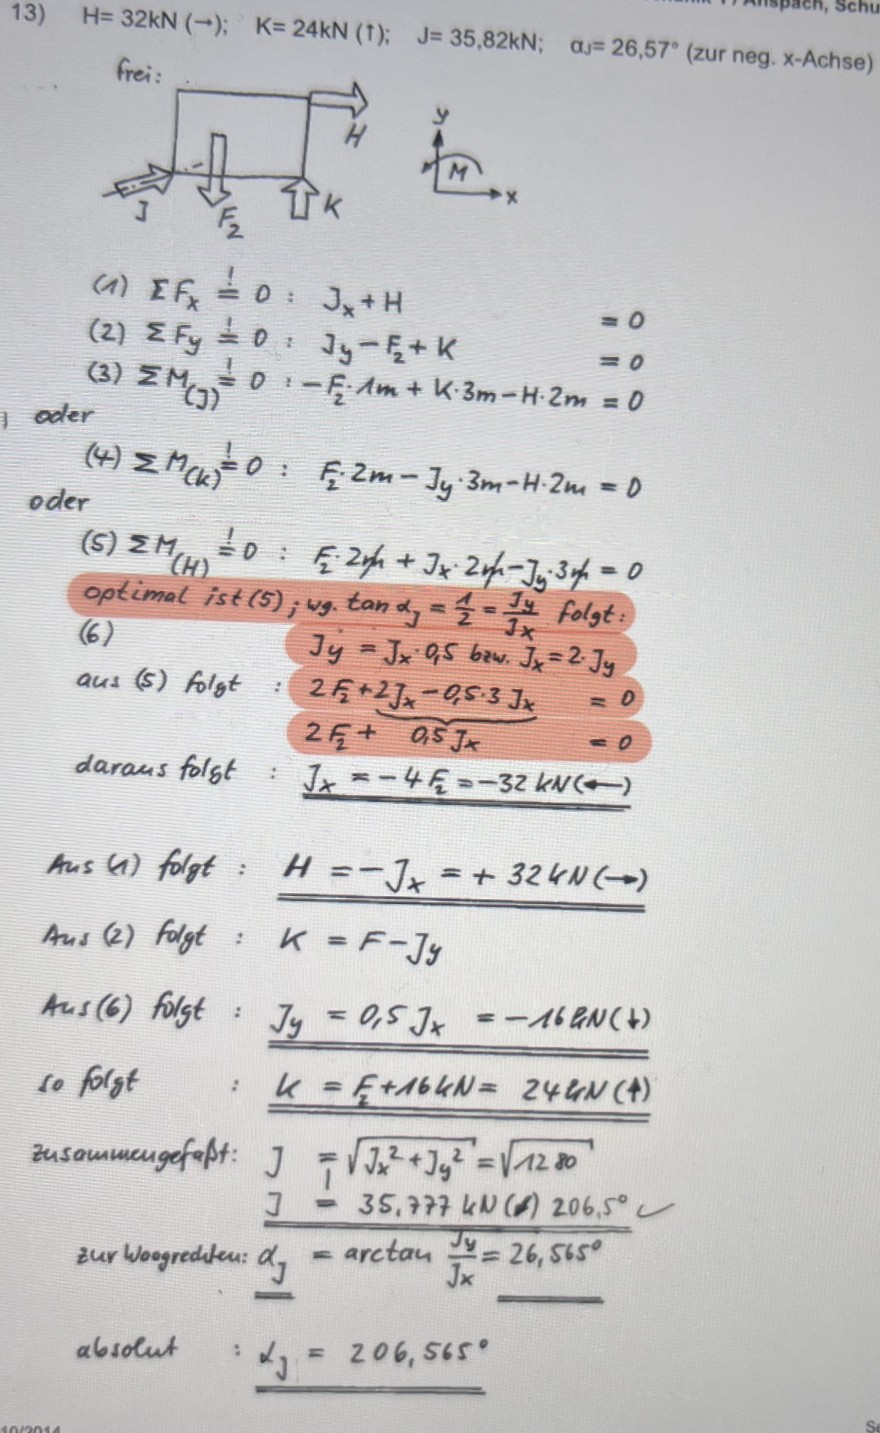 / Anspach, Schu
13) H= 32kN (→); K= 24kN (↑); J= 35,82kN; αJ= 26,57° (zur neg. x-Achse)
frei:
H
J
F₂
K
y
M
x
(1) ΣFx =! 0 : Jx + H = 0
(2) ΣFy =! 0 : Jy - F₂ + K = 0
(3) ΣM(J) =! 0 : -F₂·1m + K·3m - H·2m = 0
oder
(4) ΣM(K) =! 0 : F₂·2m - Jy·3m - H·2m = 0
oder
(5) ΣM(H) =! 0 : F₂·2m + Jx·2m - Jy·3m = 0
optimal ist (5); wg. tan αJ = 1/2 = Jy/Jx folgt:
(6) Jy = Jx·0,5 bzw. Jx = 2·Jy
aus (5) folgt : 2F₂ + 2Jx - 0,5·3Jx = 0
2F₂ + 0,5Jx = 0
daraus folgt : Jx = -4F₂ = -32 kN (←)
Aus (1) folgt : H = -Jx = + 32 kN (→)
Aus (2) folgt : K = F - Jy
Aus (6) folgt : Jy = 0,5 Jx = -16 kN (↓)
so folgt : K = F₂ + 16 kN = 24 kN (↑)
zusammengefaßt: J = √(Jx² + Jy²) = √1280
J = 35,777 kN (↙) 206,5° ✓
zur Waagrechten: αJ = arctan Jy/Jx = 26,565°
absolut : αJ = 206,565°
10/2014
Se